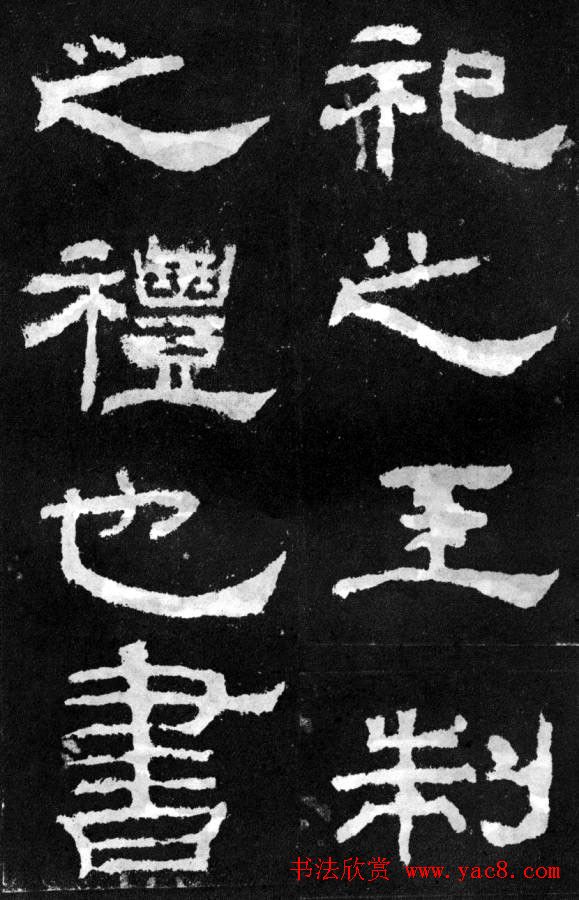 祀之王制
之禮也書
书法欣赏 www.yac8.com